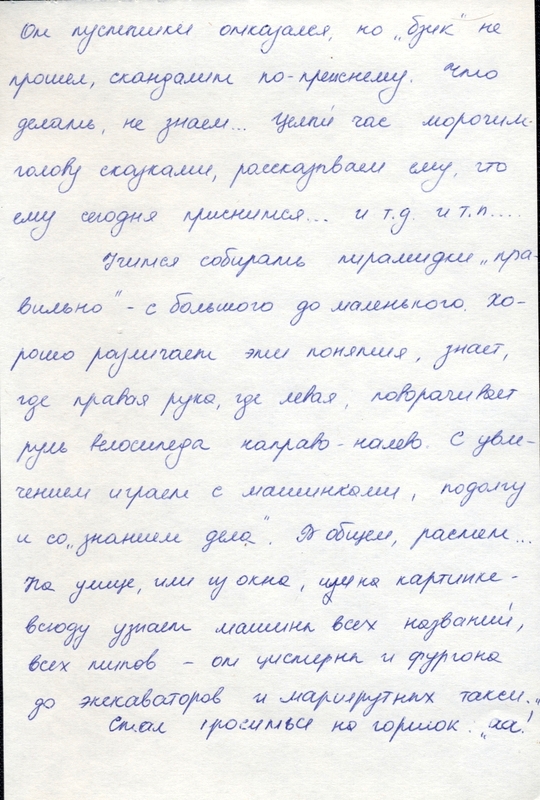 От пустышки отказался, но „бзик" не
прошел, скандалит по-прежнему. Что
делать, не знаем... Целый час морочим
голову сказками, рассказываем ему, что
ему сегодня приснится... и т.д. и т.п....
Учимся собирать пирамидки „пра-
вильно" - с большого до маленького. Хо-
рошо различает эти понятия, знает,
где правая рука, где левая, поворачивает
руль велосипеда направо-налево. С увле-
чением играет с машинками, подолгу
и со „знанием дела". В общем, растем...
На улице, или из окна, на картинке -
всюду узнает машины всех названий,
всех типов - от цистерны и фургона
до экскаваторов и маршрутных такси.
Стал проситься на горшок: „аа!